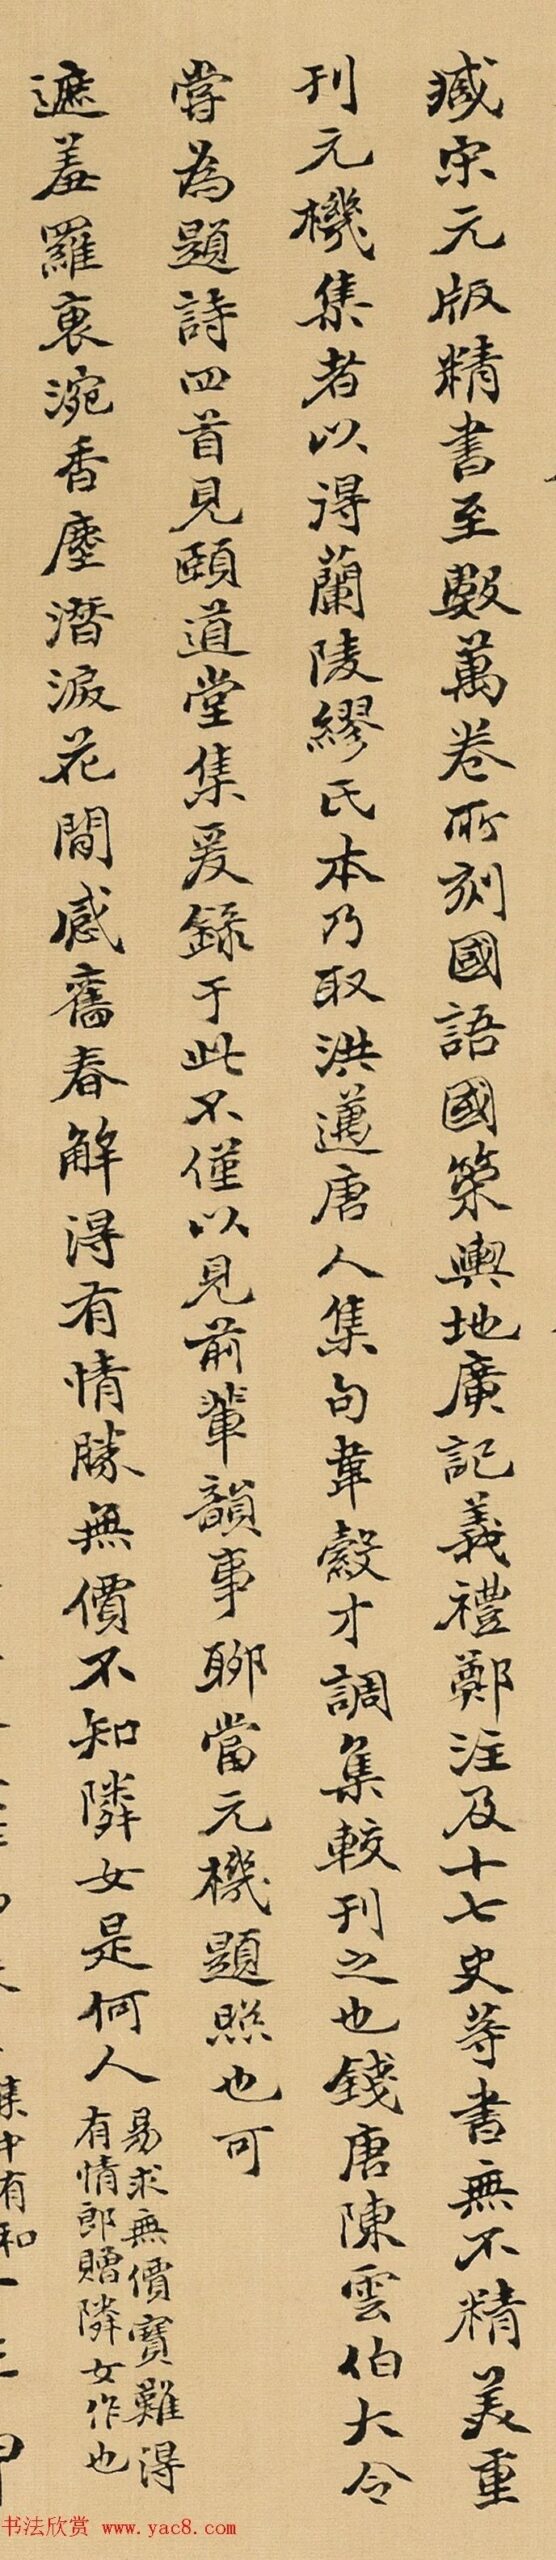 臧宋元版精書至數萬卷所刻國語國策輿地廣記義禮鄭注及十七史等書無不精美重
刊元機集者以得蘭陵繆氏本乃取洪邁唐人集句韋縠才調集較刊之也錢唐陳雲伯大令
嘗為題詩四首見頤道堂集爰錄于此不僅以見前輩韻事聊當元機題照也可
遮羞羅裏涴香塵潛淚花間感舊春解得有情勝無價不知隣女是何人
易求無價寶難得
有情郎贈隣女作也
集中有和一
书法欣赏 www.yac8.com